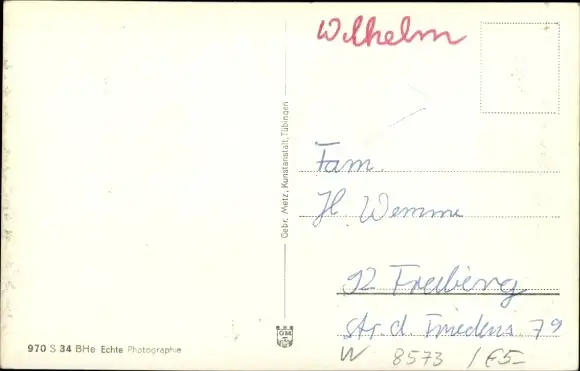 Wilhelm
Gebr. Metz, Kunstanstalt, Tübingen
Fam.
H. Wemme
92 Freiberg
Str. d. Friedens 79
W 8573 / €5-
GM
970 S 34 BHe Echte Photographie